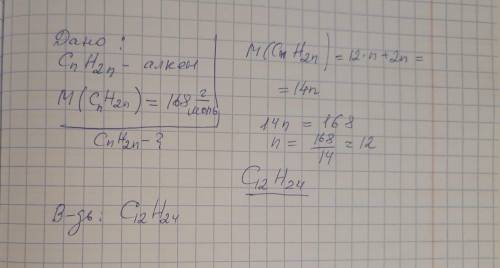 Дано:
CnH2n - алкен
M(CnH2n) = 168 г/моль
CnH2n - ?
M(CnH2n) = 12·n+2n =
= 14n
14n = 168
n = 168/14 = 12
C12H24
В-дь: C12H24